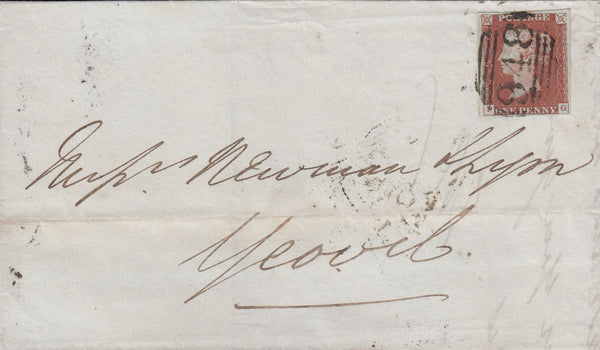 POSTAGE
948
ONE PENNY G
Messrs Newman & Lyon
Yeovil